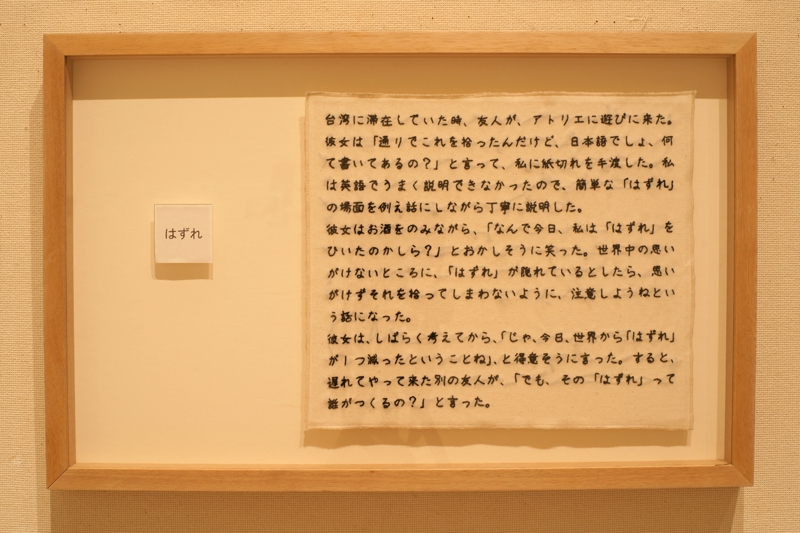 はずれ
台湾に滞在していた時、友人が、アトリエに遊びに来た。
彼女は「通りでこれを拾ったんだけど、日本語でしょ、何
て書いてあるの？」と言って、私に紙切れを手渡した。私
は英語でうまく説明できなかったので、簡単な「はずれ」
の場面を例え話にしながら丁寧に説明した。
彼女はお酒をのみながら、「なんで今日、私は「はずれ」を
ひいたのかしら？」とおかしそうに笑った。世界中の思い
がけないところに、「はずれ」が隠れているとしたら、思い
がけずそれを拾ってしまわないように、注意しようねとい
う話になった。
彼女は、しばらく考えてから、「じゃ、今日、世界から「はずれ」
が1つ減ったということね」、と得意そうに言った。すると、
遅れてやって来た別の友人が、「でも、その「はずれ」って
誰がつくるの？」と言った。